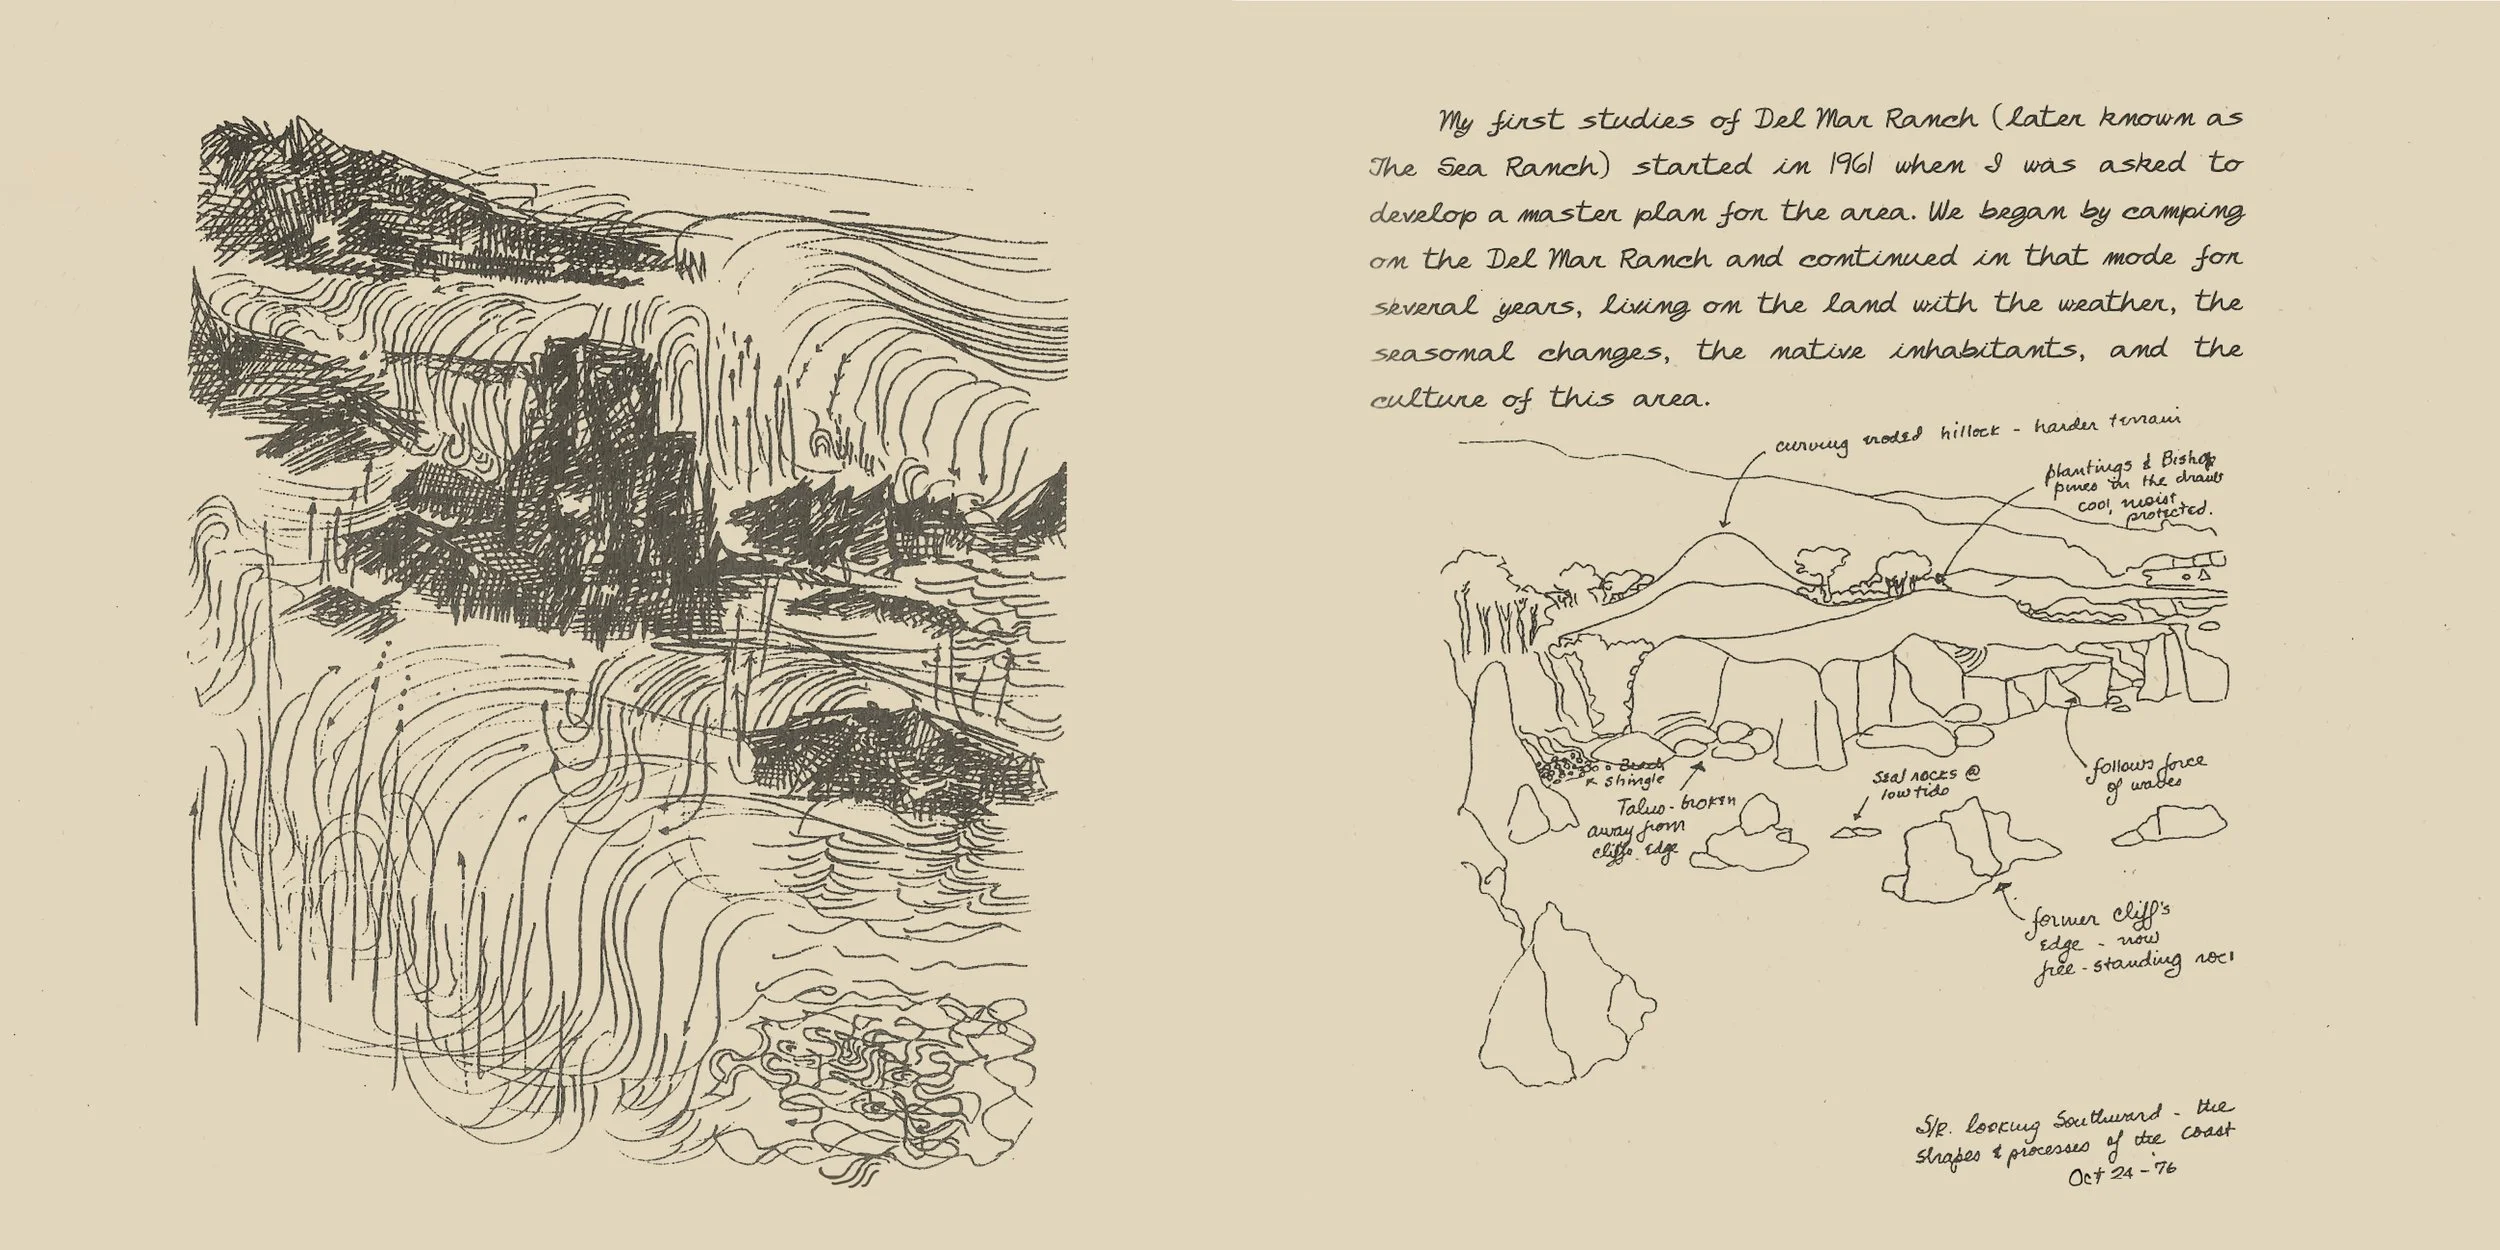 My first studies of Del Mar Ranch (later known as
The Sea Ranch) started in 1961 when I was asked to
develop a master plan for the area. We began by camping
on the Del Mar Ranch and continued in that mode for
several years, living on the land with the weather, the
seasonal changes, the native inhabitants, and the
culture of this area.
curving eroded hillock - harder terrain
plantings & Bishop
pines in the draws
cool, moist,
protected.
Beach
shingle
Talus - broken
away from
cliffs edge
seal rocks @
low tide
follows force
of waves
former cliff's
edge - now
free-standing
S/R. looking Southward - the
shapes & processes of the coast
Oct 24 - 76